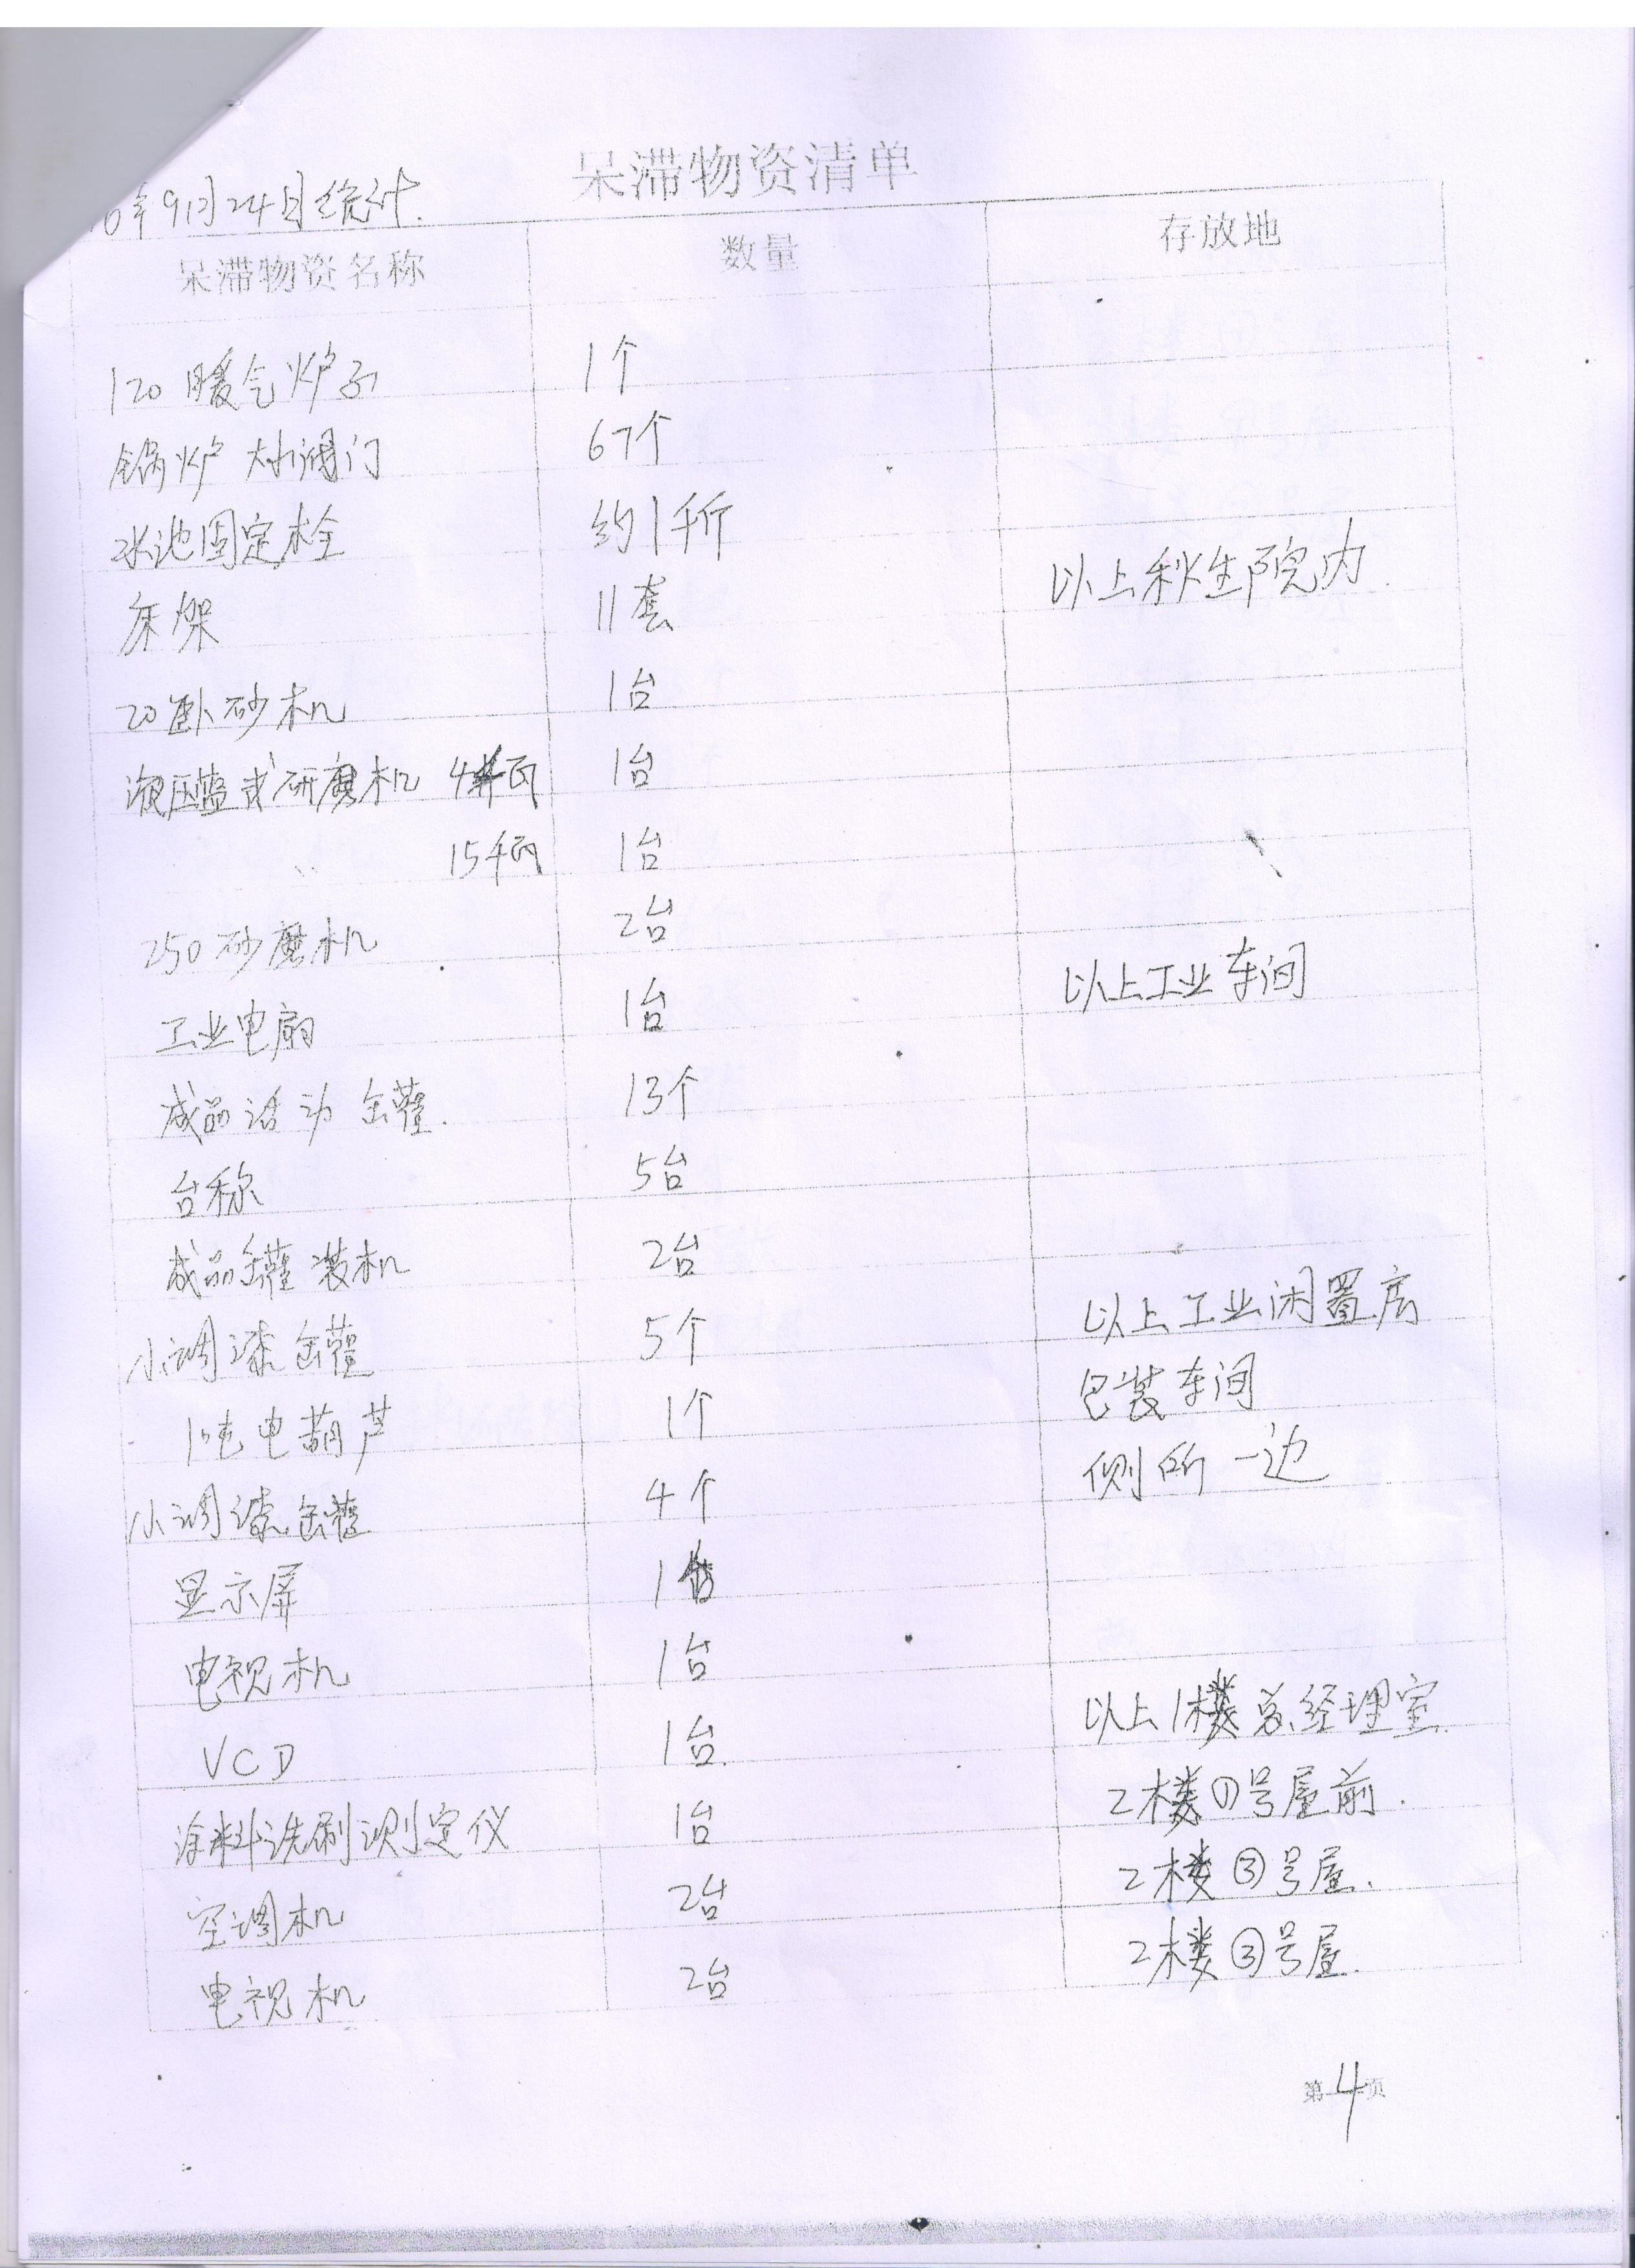 呆滞物资清单
6年9月24日统计.
呆滞物资名称 数量 存放地
120暖气炉子 1个
锅炉 阀门 67个
水池固定栓 约1千斤
床架 11套 以上秋生院内.
20卧砂机 1台
液压篮式研磨机 4千瓦 1台
〃 15千瓦 1台
250砂磨机 2台
工业电扇 1台 以上工业车间
成品活动 罐. 13个
台称 5台
成品罐装机 2台
小调漆罐 5个 以上工业闲置房
1吨电葫芦 1个 包装车间
小调漆罐 4个 侧所一边
显示屏 1台
电视机 1台
VCD 1台. 以上1楼总经理室.
涂料洗刷测定仪 1台 2楼①号屋前.
空调机 2台 2楼③号屋.
电视机 2台 2楼③号屋.
第4页